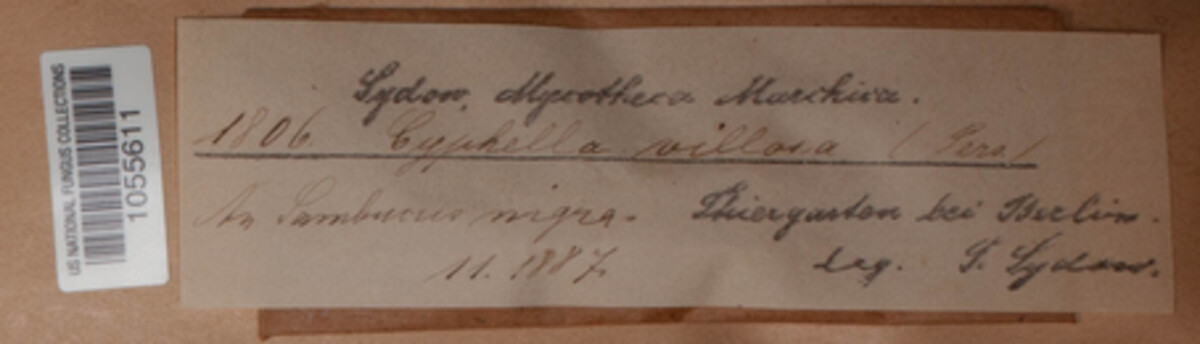 US NATIONAL FUNGUS COLLECTIONS
1055611
Sydow, Mycotheca Marchica.
1806 Cyphella villosa (Pers.)
An Sambucus nigra.
Thiergarten bei Berlin.
11. 1887.
leg. P. Sydow.